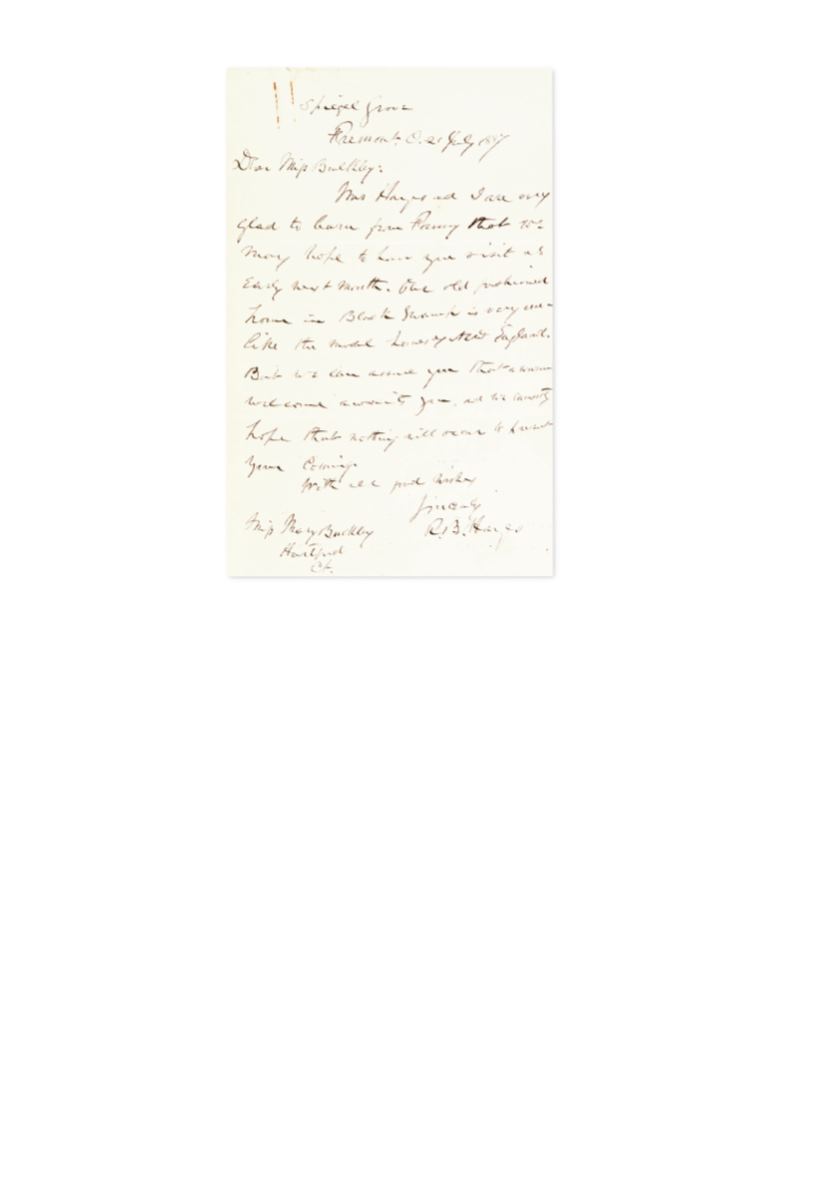 Spiegel Grove
Fremont, O. 21 July 1887
Dear Miss Bulkley:
Mrs Hayes and I are very
glad to learn from Fanny that we
may hope to have you visit us
early next month. Our old fashioned
home in Black Swamp is very un-
like the model homes of New England.
But we can assure you that a warm
welcome awaits you, and we earnestly
hope that nothing will occur to prevent
your coming.
With all good wishes
Sincerely
R. B. Hayes
Miss Mary Bulkley
Hartford
Ct.